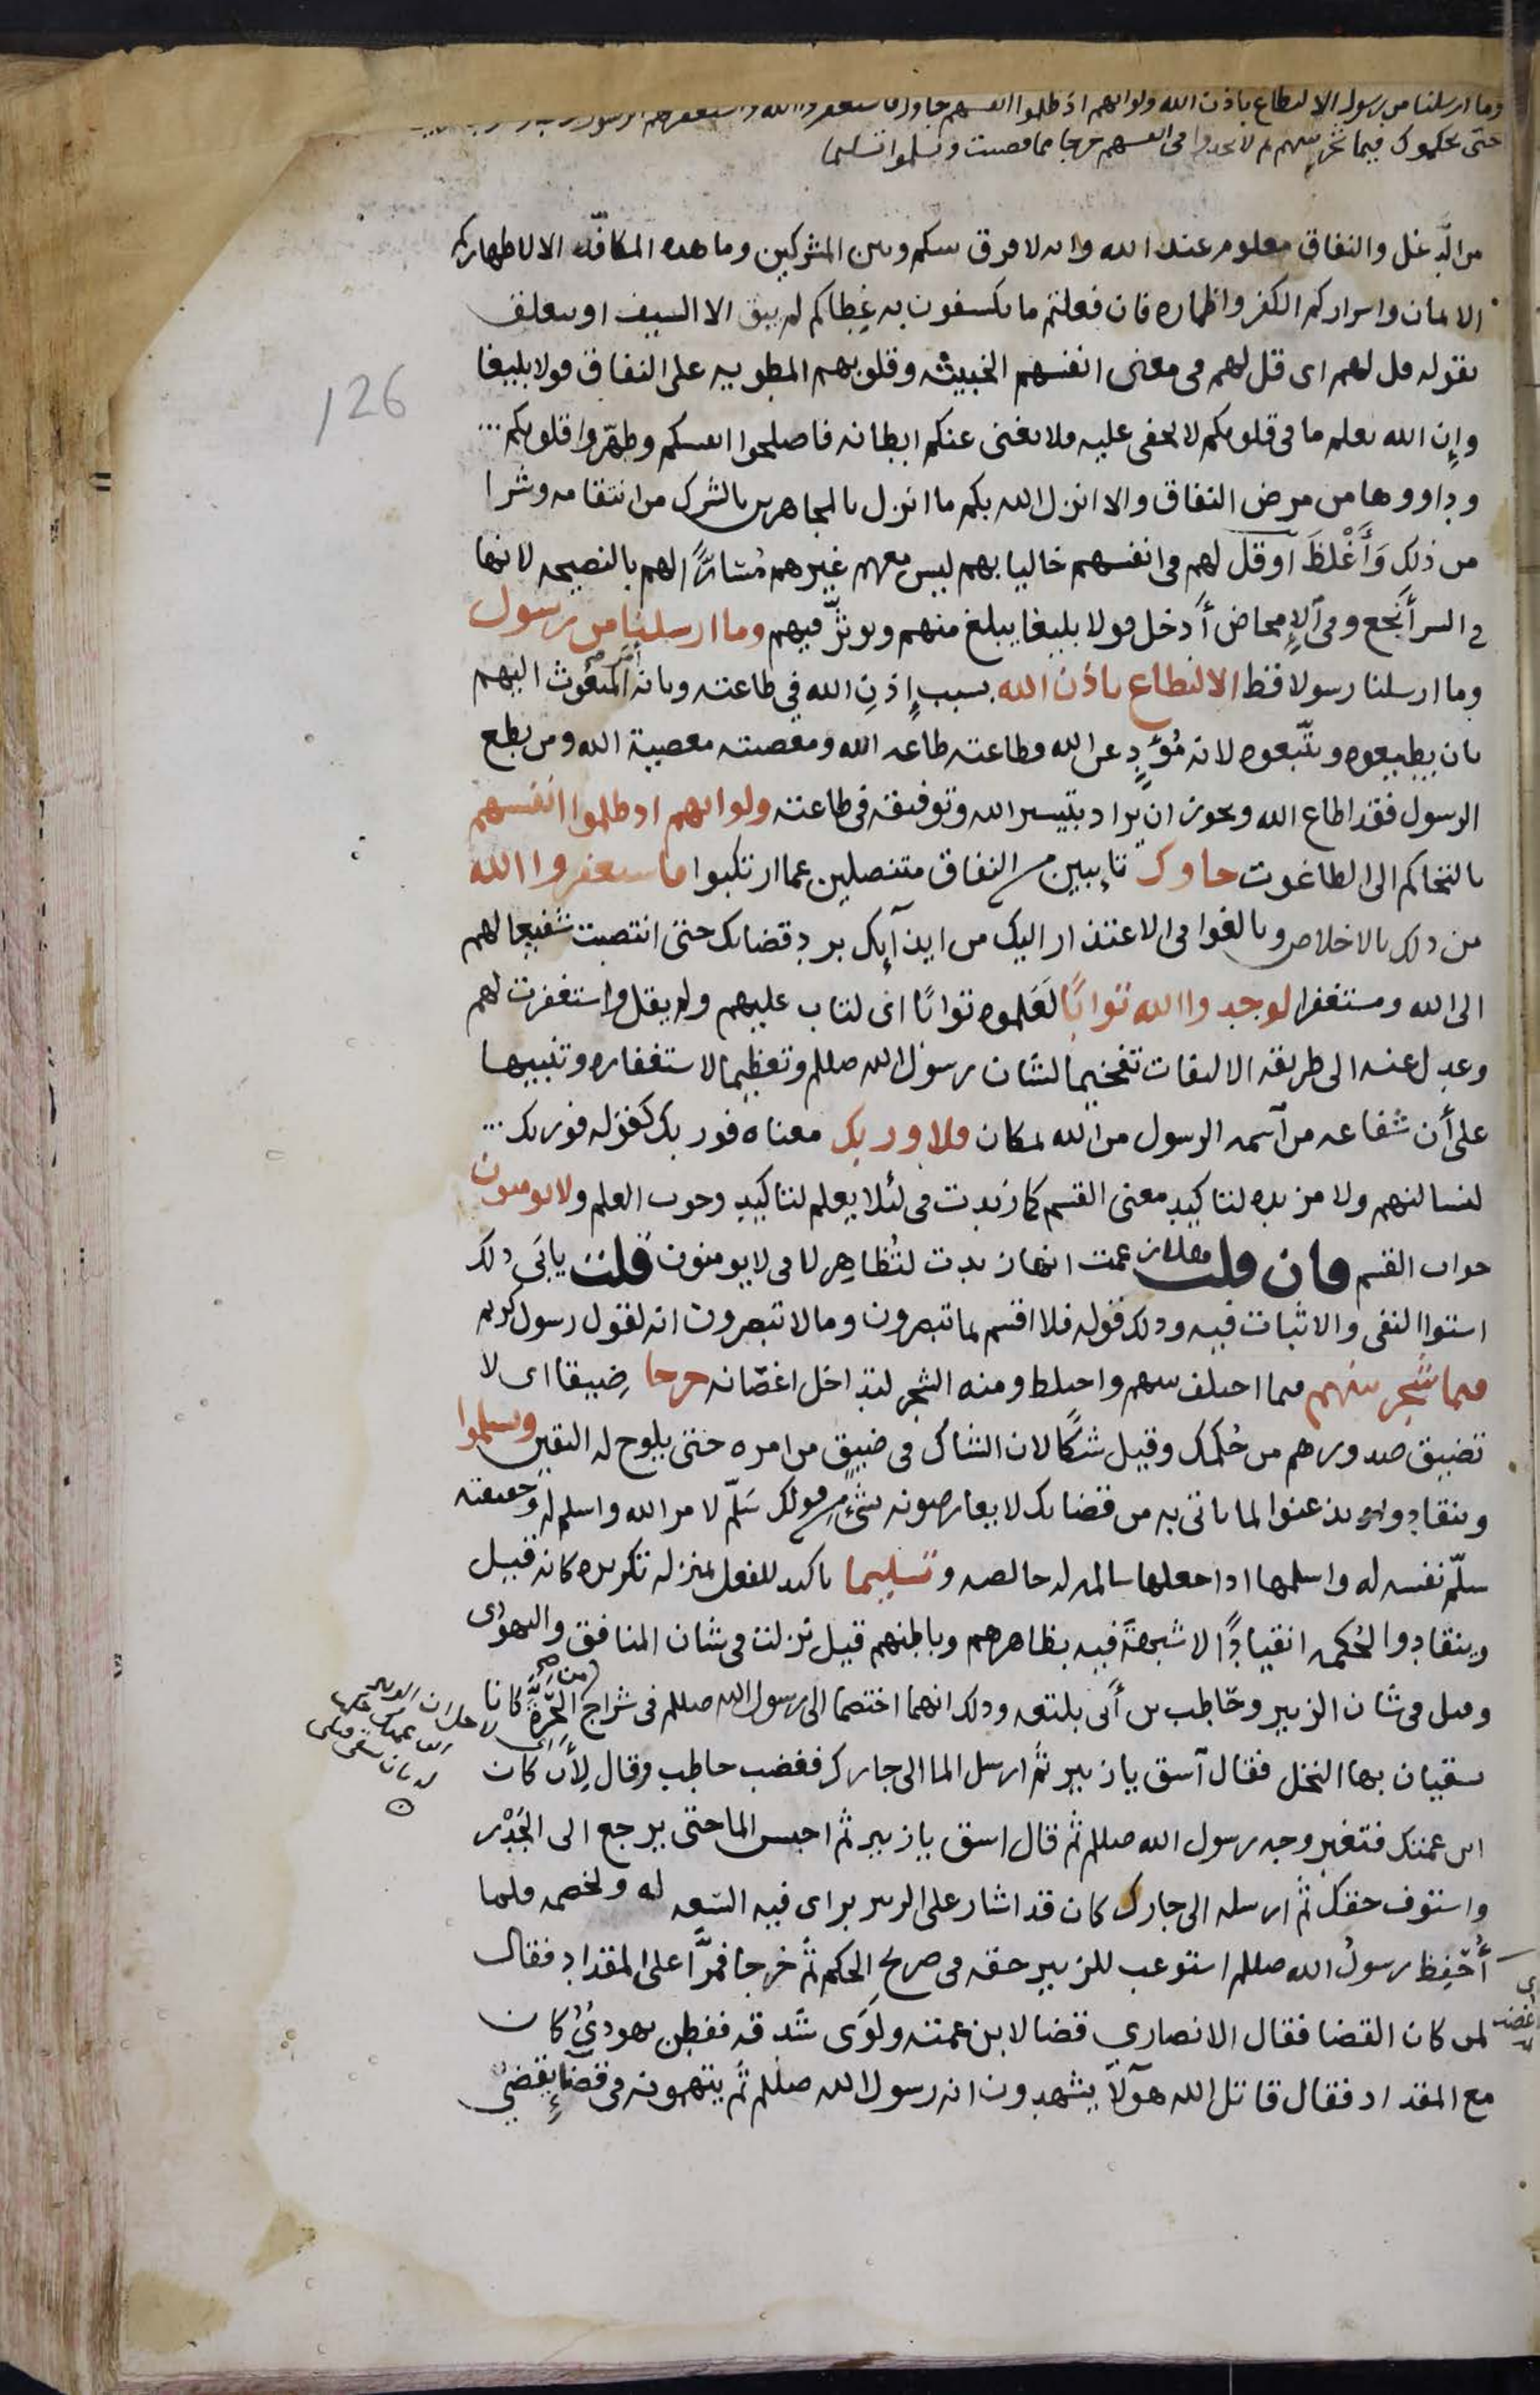 وما ارسلنا من رسول الا ليطاع باذن الله ولو انهم اذ ظلموا انفسهم جاوك فاستغفروا الله واستغفر لهم الرسول
حتى يحكموك فيما شجر بينهم ثم لا يجدوا فى انفسهم حرجا مما قضيت ويسلموا تسليما
من الدَّغل والنفاق معلوم عند الله وانه لا فرق بينكم وبين المشركين وما هذه المكافّه الا لاظهاركم
الايمان واسراركم الكفر واظماره فان فعلتم ما تكشفون به غِطاكم لم يبق الا السيف او يتعلف
بقوله قل لهم اى قل لهم فى معنى انفسهم الخبيثه وقلوبهم المطويه على النفاق قولا بليغا
وإن الله يعلم ما فى قلوبكم لا يخفى عليه فلا يغنى عنكم ابطانه فاصلحوا انفسكم وطهّروا قلوبكم
وداووها من مرض النفاق والا انزل الله بكم ما انزل بالمجاهرين بالشرك من انتقامه وشرا
من ذلك وَأَغْلظَ آو قل لهم فى انفسهم خاليا بهم ليس معهم غيرهم مُسَارًّا لهم بالنصيحه لانها
فى السر أَنجع وفى الإمحاض أدخل قولا بليغا يبلغ منهم ويوثّر فيهم وما ارسلنا من رسول
وما ارسلنا رسولا قط الا ليطاع باذن الله بسبب إذنِ الله في طاعته وبانه أمر المبعوث اليهم
بان يطيعوه ويتّبعوه لانه مُؤَدٍّ عن الله فطاعته طاعه الله ومعصيته معصية الله ومن يطع
الرسول فقد اطاع الله ويجوز ان يراد بتيسير الله وتوفيقه فى طاعته ولو انهم اذ ظلموا انفسهم
بالتحاكم الى الطاغوت جاوك تايبين من النفاق متنصلين عما ارتكبوا فاستغفروا الله
من ذلك بالاخلاص وبالغوا فى الاعتذار اليك من ايذآئك برد قضائك حتى انتصبت شفيعا لهم
الى الله ومستغفرا لوجدوا الله توابًا لَعَلموه توابًا اى لتاب عليهم ولم يقل واستغفرت لهم
وعدل عنه الى طريقه الالتفات تفخيما لشان رسول الله صللم وتعظيما لاستغفاره وتنبيها
على أن شفاعه من آسمه الرسول من الله بمكان فلا وربك معناه فوربك كقوله فوربك
لنسالنهم ولا مزيده لتاكيد معنى القسم كما زيدت فى لئلا يعلم لتاكيد وجوب العلم ولا يومنون
جواب القسم فان قلت هلا زعمت انها زيدت لتُظاهِر لا فى لا يومنون قلت يابَى ذلك
استوا النفى والاثبات فيه وذلك قوله فلا اقسم بما تبصرون وما لا تبصرون انه لقول رسول كريم
فيما شجر بينهم فيما اختلف بينهم واختلط ومنه الشجر لتداخل اغصانه حرجا ضيقا اى لا
تضيق صدورهم من حُكمك وقيل شكًا لان الشاك فى ضيق من امره حتى يلوح له اليقين ويسلموا
وينقادوا ويذعنوا لما تاتى به من قضائك لا يعارضونه بشئٍ من قولك سَلّم لامر الله واسلم له وحقيقته
سلّم نفسه له واسلمها اذا جعلها سالمه له خالصه وتسليما تاكيد للفعل بمنزله تكريره كانه قيل
وينقادوا لحُكمه انقيادًا لا شبهةَ فيه بظاهرهم وباطنهم قيل نزلت فى شان المنافق واليهودى
وقيل فى شان الزبير وحَاطِب بن أَبى بلتعه وذلك انهما اختصما الى رسول الله صللم فى شراج من الحَرَّةِ كانا
يسقيان بها النخل فقال آسق يا زبير ثم ارسل الما الى جارك فغضب حاطب وقال لِأَن كان
ابن عمتك فتغير وجه رسول الله صللم ثم قال اسق يا زبير ثم احبس الما حتى يرجع الى الجَدْر
واستوف حقك ثم ارسله الى جارك كان قد اشار على الزبير براى فيه السّعه له ولخصمه فلما
أَحْفِظ رسولُ الله صللم استوعب للزبير حقه فى صريح الحكم ثم خرجا فمرَّا على المقداد فقال
لمن كان القضا فقال الانصارى قضا لابن عمته ولَوَى شدقه ففطِن يهوديٌّ كان
مع المقداد فقال قاتل الله هآولآ يشهدون انه رسول الله صللم ثم يتهمونه فى قضآءٍ يقضى
اى
اغضب
126